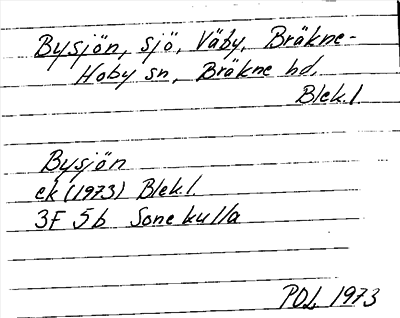 Bysjön, sjö, Väby, Bräkne-
Hoby sn, Bräkne hd,
Blek.l.
Bysjön
ek (1973) Blek.l.
3F 5b Sonekulla
POL 1973